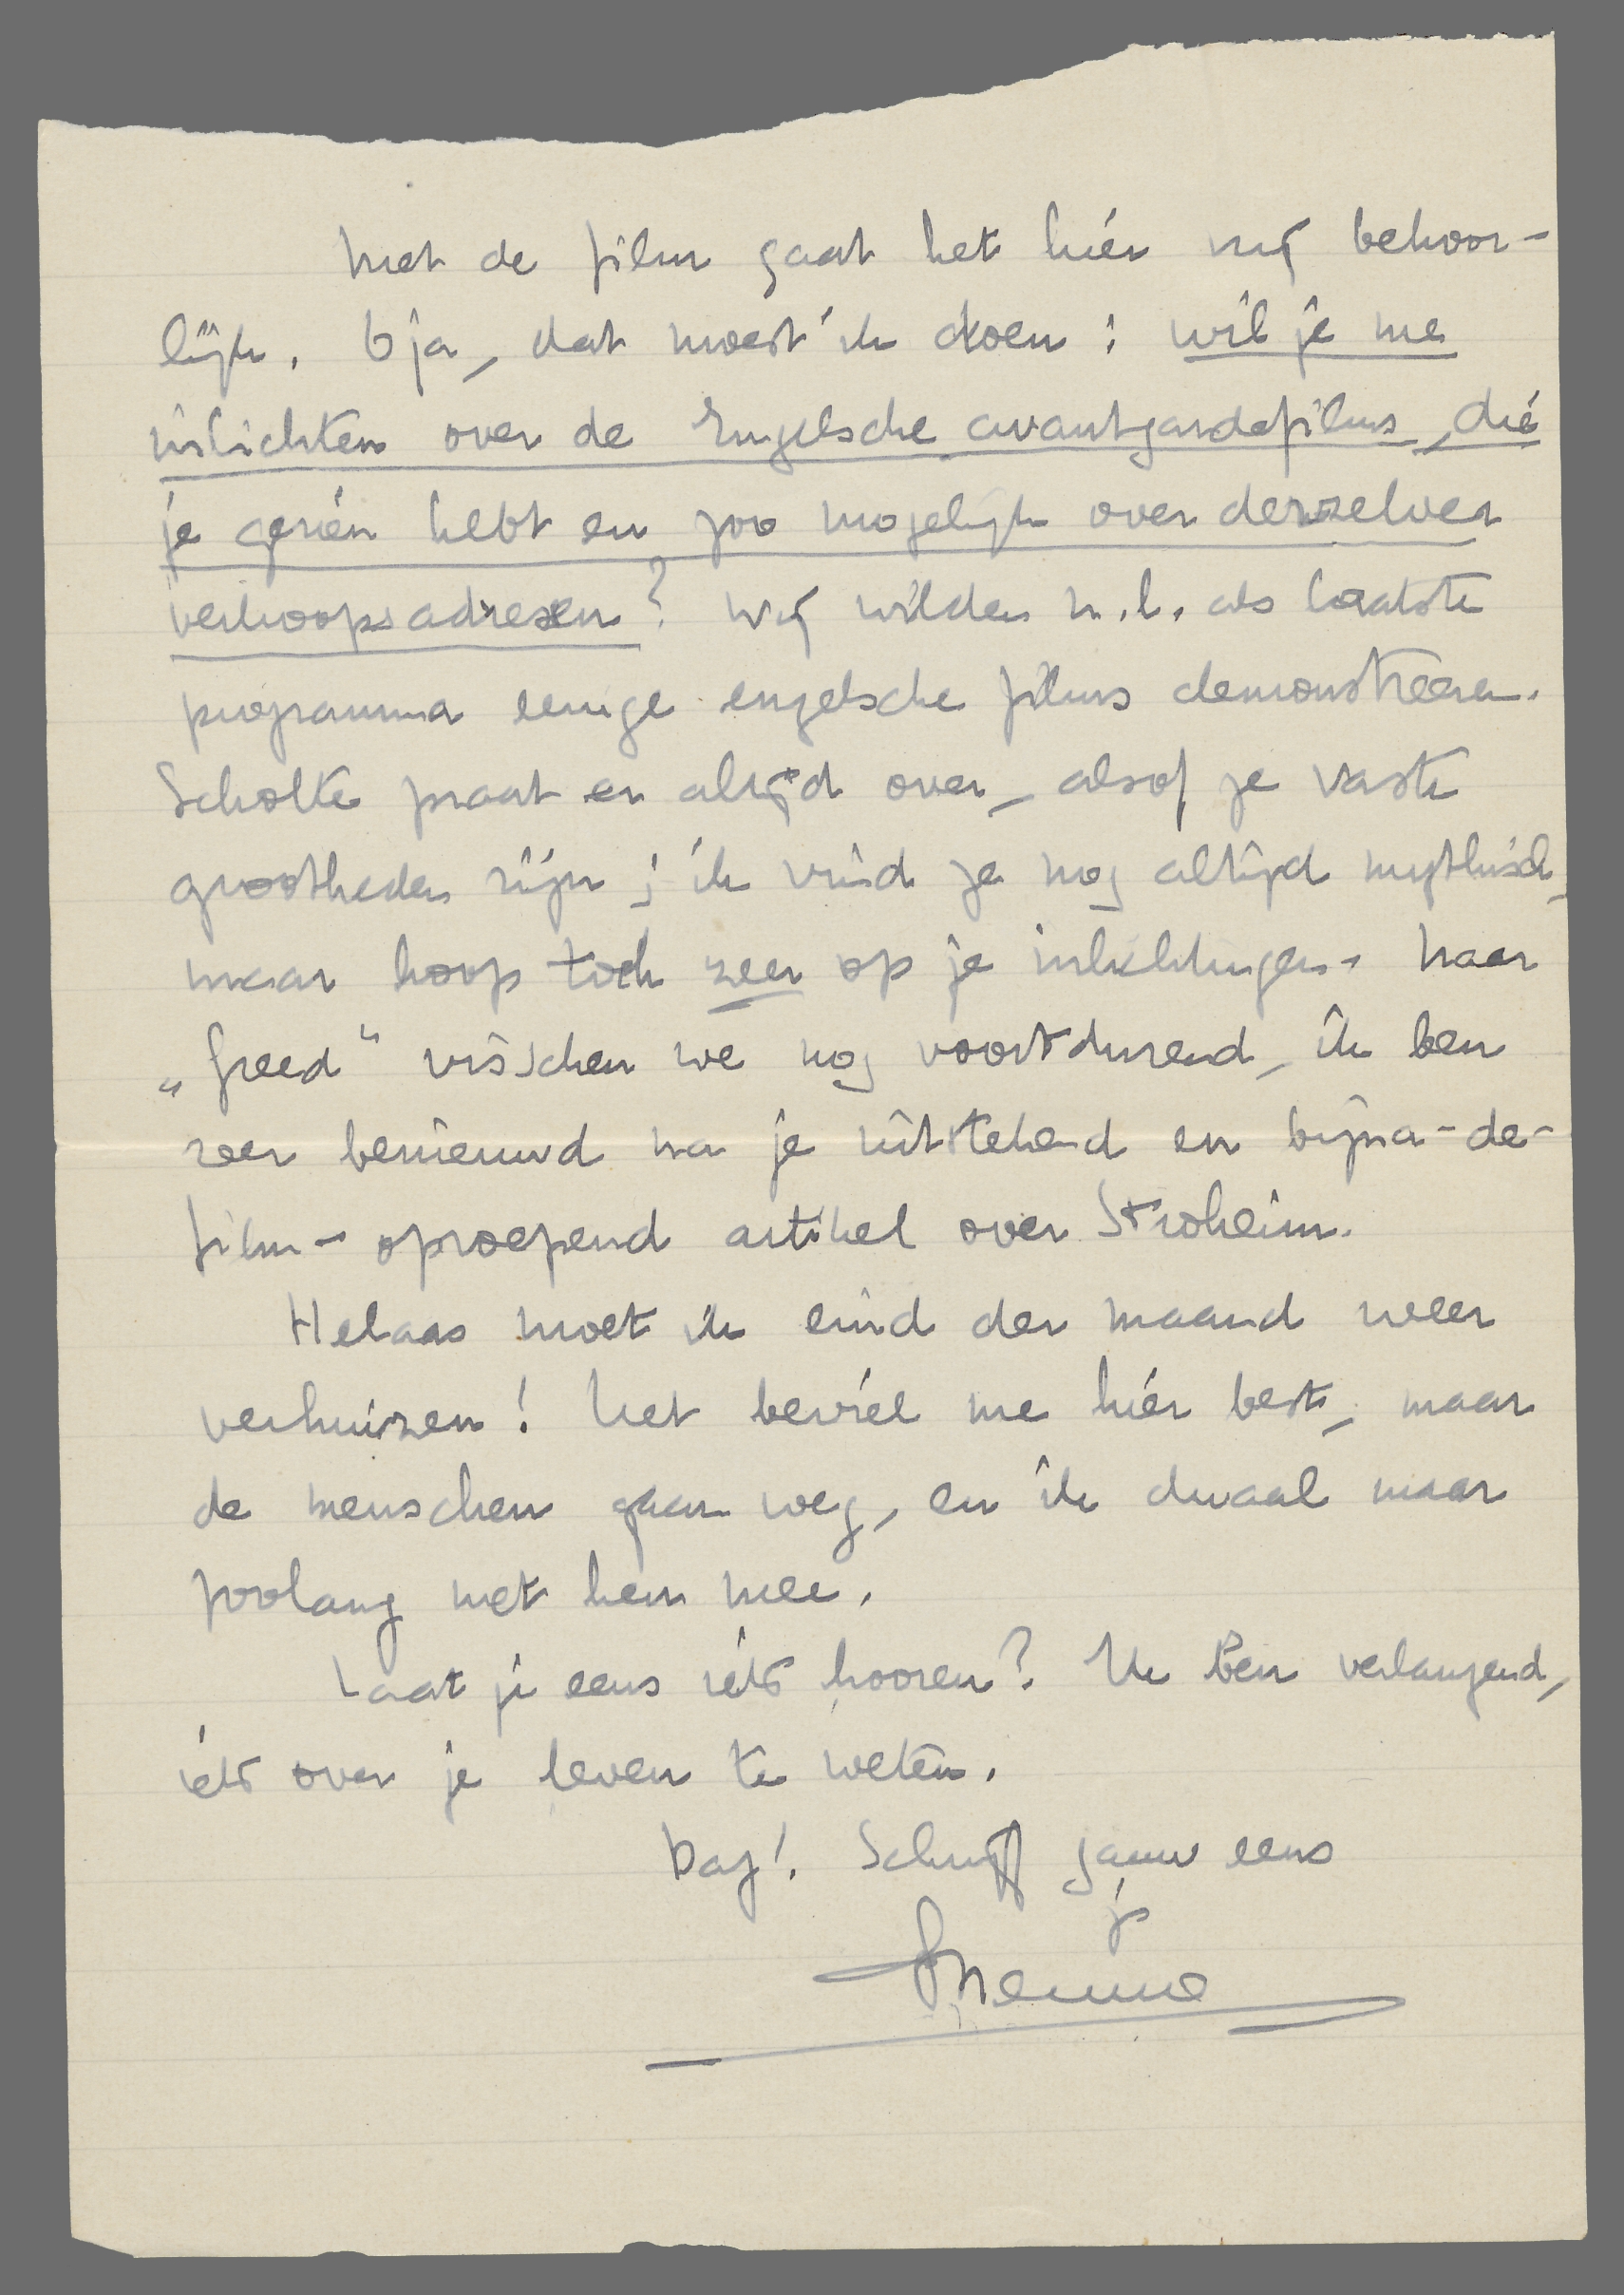 Met de film gaat het hier vrij behoor-
lijk. O ja, dat moest ik doen: wil je me
inlichten over de Engelsche avantgardefilms, die
je gezien hebt en zoo mogelijk over derzelver
verkoopsadressen? Wij wilden n.l. als laatste
programma eenige engelsche films demonstreeren.
Scholte praat er altijd over, alsof ze vaste
grootheden zijn; ik vind ze nog altijd mythisch,
maar hoop toch zeer op je inlichtingen. Naar
„Greed" visschen we nog voortdurend, ik ben
zeer benieuwd na je uitstekend en bijna-de-
film-oproepend artikel over Stroheim.
Helaas moet ik eind der maand weer
verhuizen! Het beviel me hier best, maar
de menschen gaan weg, en ik dwaal maar
zoolang met hen mee.
Laat je eens iets hooren? Ik ben verlangend,
iets over je leven te weten.
Dag! Schrijf gauw eens
je
Menno